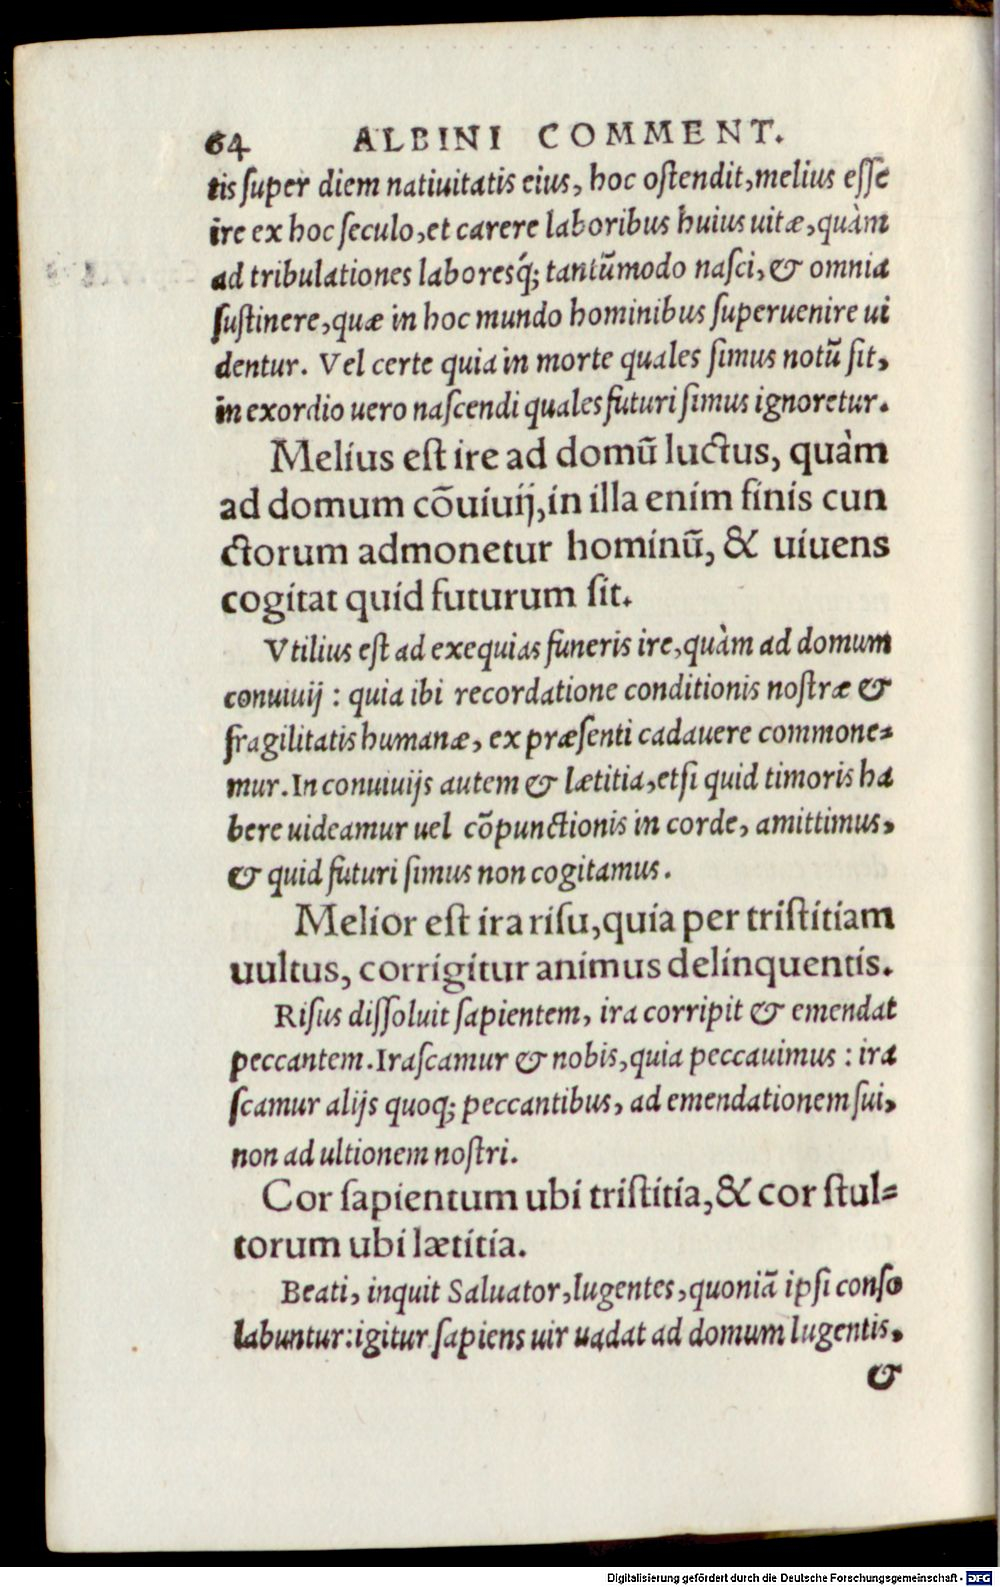 64 ALBINI COMMENT.
tis ſuper diem natiuitatis eius, hoc oſtendit, melius eſſe
ire ex hoc ſeculo, et carere laboribus huius uitæ, quàm
ad tribulationes laboresq́; tantũmodo naſci, & omnia
ſuſtinere, quæ in hoc mundo hominibus ſuperuenire ui
dentur. Vel certe quia in morte quales ſimus notũ ſit,
in exordio uero naſcendi quales futuri ſimus ignoretur.
Melius eſt ire ad domũ luctus, quàm
ad domum cõuiuij, in illa enim finis cun
ctorum admonetur hominũ, & uiuens
cogitat quid futurum ſit.
Vtilius eſt ad exequias funeris ire, quàm ad domum
conuiuij : quia ibi recordatione conditionis noſtræ &
fragilitatis humanæ, ex præſenti cadauere commone⸗
mur. In conuiuijs autem & lætitia, etſi quid timoris ha
bere uideamur uel cõpunctionis in corde, amittimus,
& quid futuri ſimus non cogitamus.
Melior eſt ira riſu, quia per triſtitiam
uultus, corrigitur animus delinquentis.
Riſus diſſoluit ſapientem, ira corripit & emendat
peccantem. Iraſcamur & nobis, quia peccauimus : ira
ſcamur alijs quoq; peccantibus, ad emendationem ſui,
non ad ultionem noſtri.
Cor ſapientum ubi triſtitia, & cor ſtul⸗
torum ubi lætitia.
Beati, inquit Saluator, lugentes, quoniã ipſi conſo
labuntur: igitur ſapiens uir uadat ad domum lugentis,
&
Digitalisierung gefördert durch die Deutsche Forschungsgemeinschaft - DFG